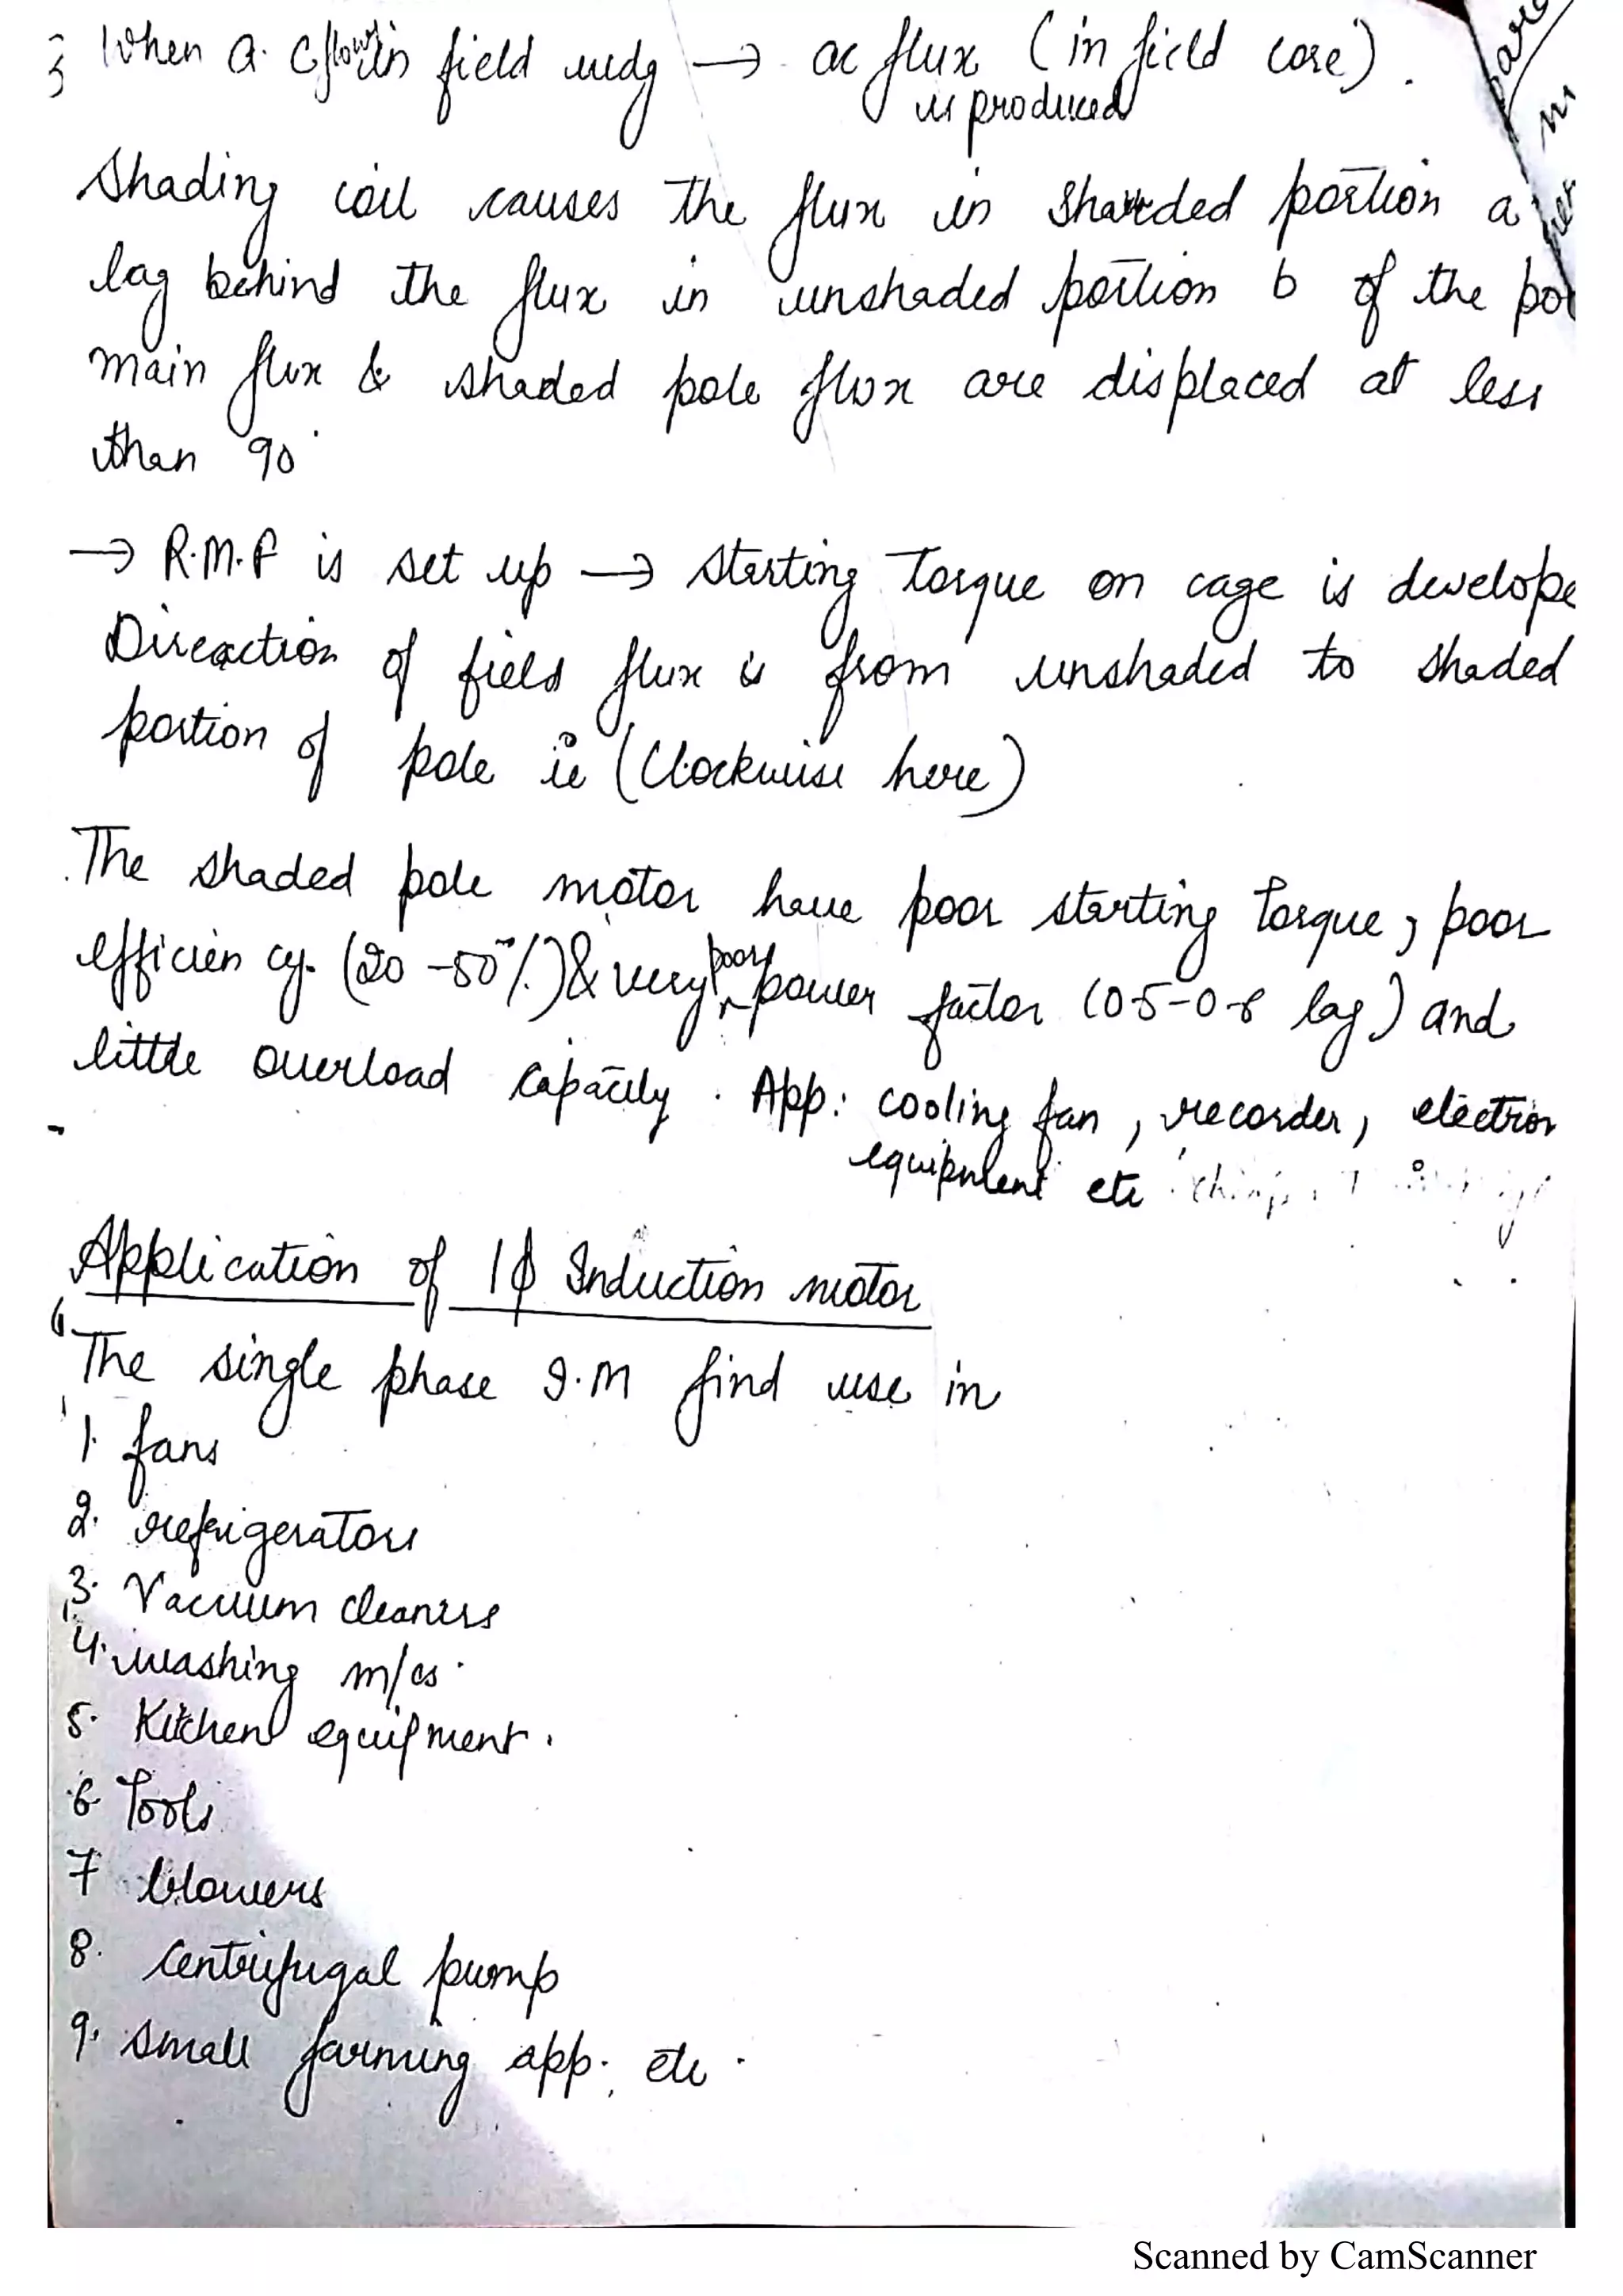 When a.c flows in field wdg → ac flux (in field core).
is produced
Shading coil causes the flux in shaded portion a
lag behind the flux in unshaded portion b of the po
main flux & shaded pole flux are displaced at less
than 90°
→ R.M.F is set up → starting Torque on cage is develope
Direction of field flux is from unshaded to shaded
portion of pole ie (Clockwise here)
The shaded pole motor have poor starting Torque, poor
efficiency. (20-50%) & very poor power factor (0.5-0.6 lag) and
little overload capacity. App: cooling fan, recorder, electron
equipment etc
Application of 1ϕ Induction motor
The single phase I.M find use in
1. fans
2. refrigerators
3. Vacuum cleaners
4. washing m/cs.
5. Kitchen equipment.
6. Tools
7 blowers
8. Centrifugal pump
9. small farming app. etc.
Scanned by CamScanner